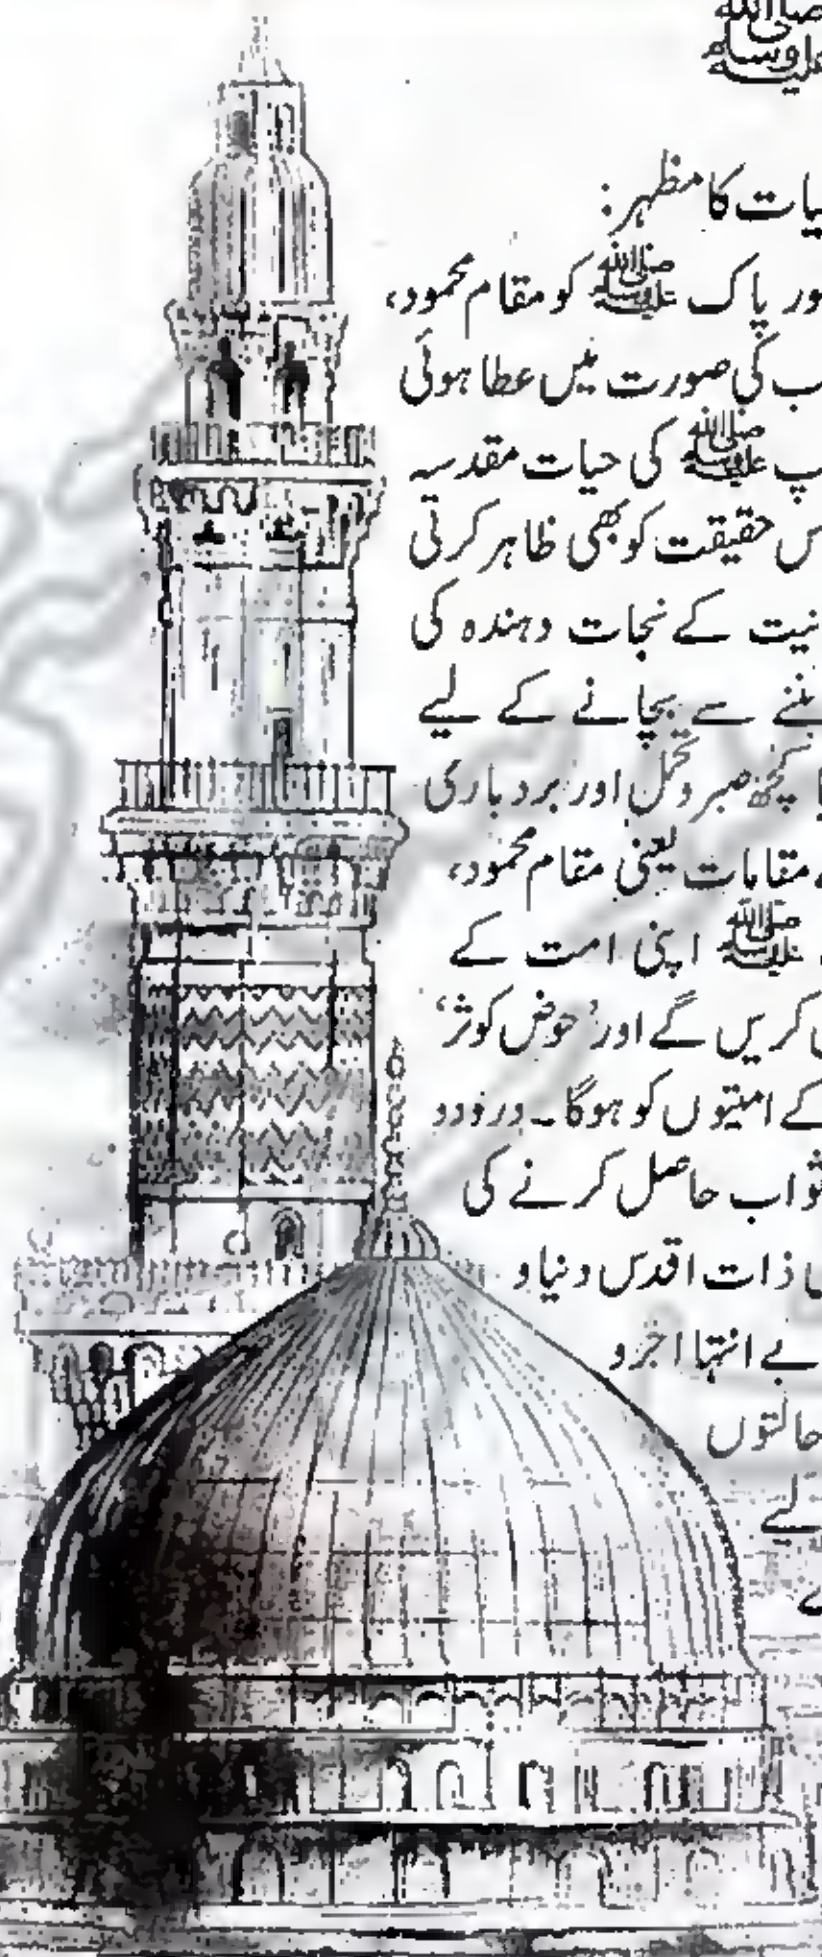 ﷺ
کا مظہر:
پاک ﷺ کو مقام محمود،
کی صورت میں عطا ہوئی
ﷺ کی حیات مقدسہ
حقیقت کو بھی ظاہر کرتی
کے نجات دہندہ کی
سے بچانے کے لیے
کچھ صبر و تحمل اور بردباری
مقامات یعنی مقام محمود،
ﷺ اپنی امت کے
کریں گے اور ’حوض کوثر‘
کے امتیوں کو ہوگا۔ درود و
ثواب حاصل کرنے کی
ذات اقدس دنیا و
بے انتہا اجر و
حالتوں